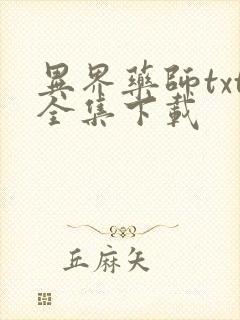 異界藥師txt
全集下載
丘麻矢